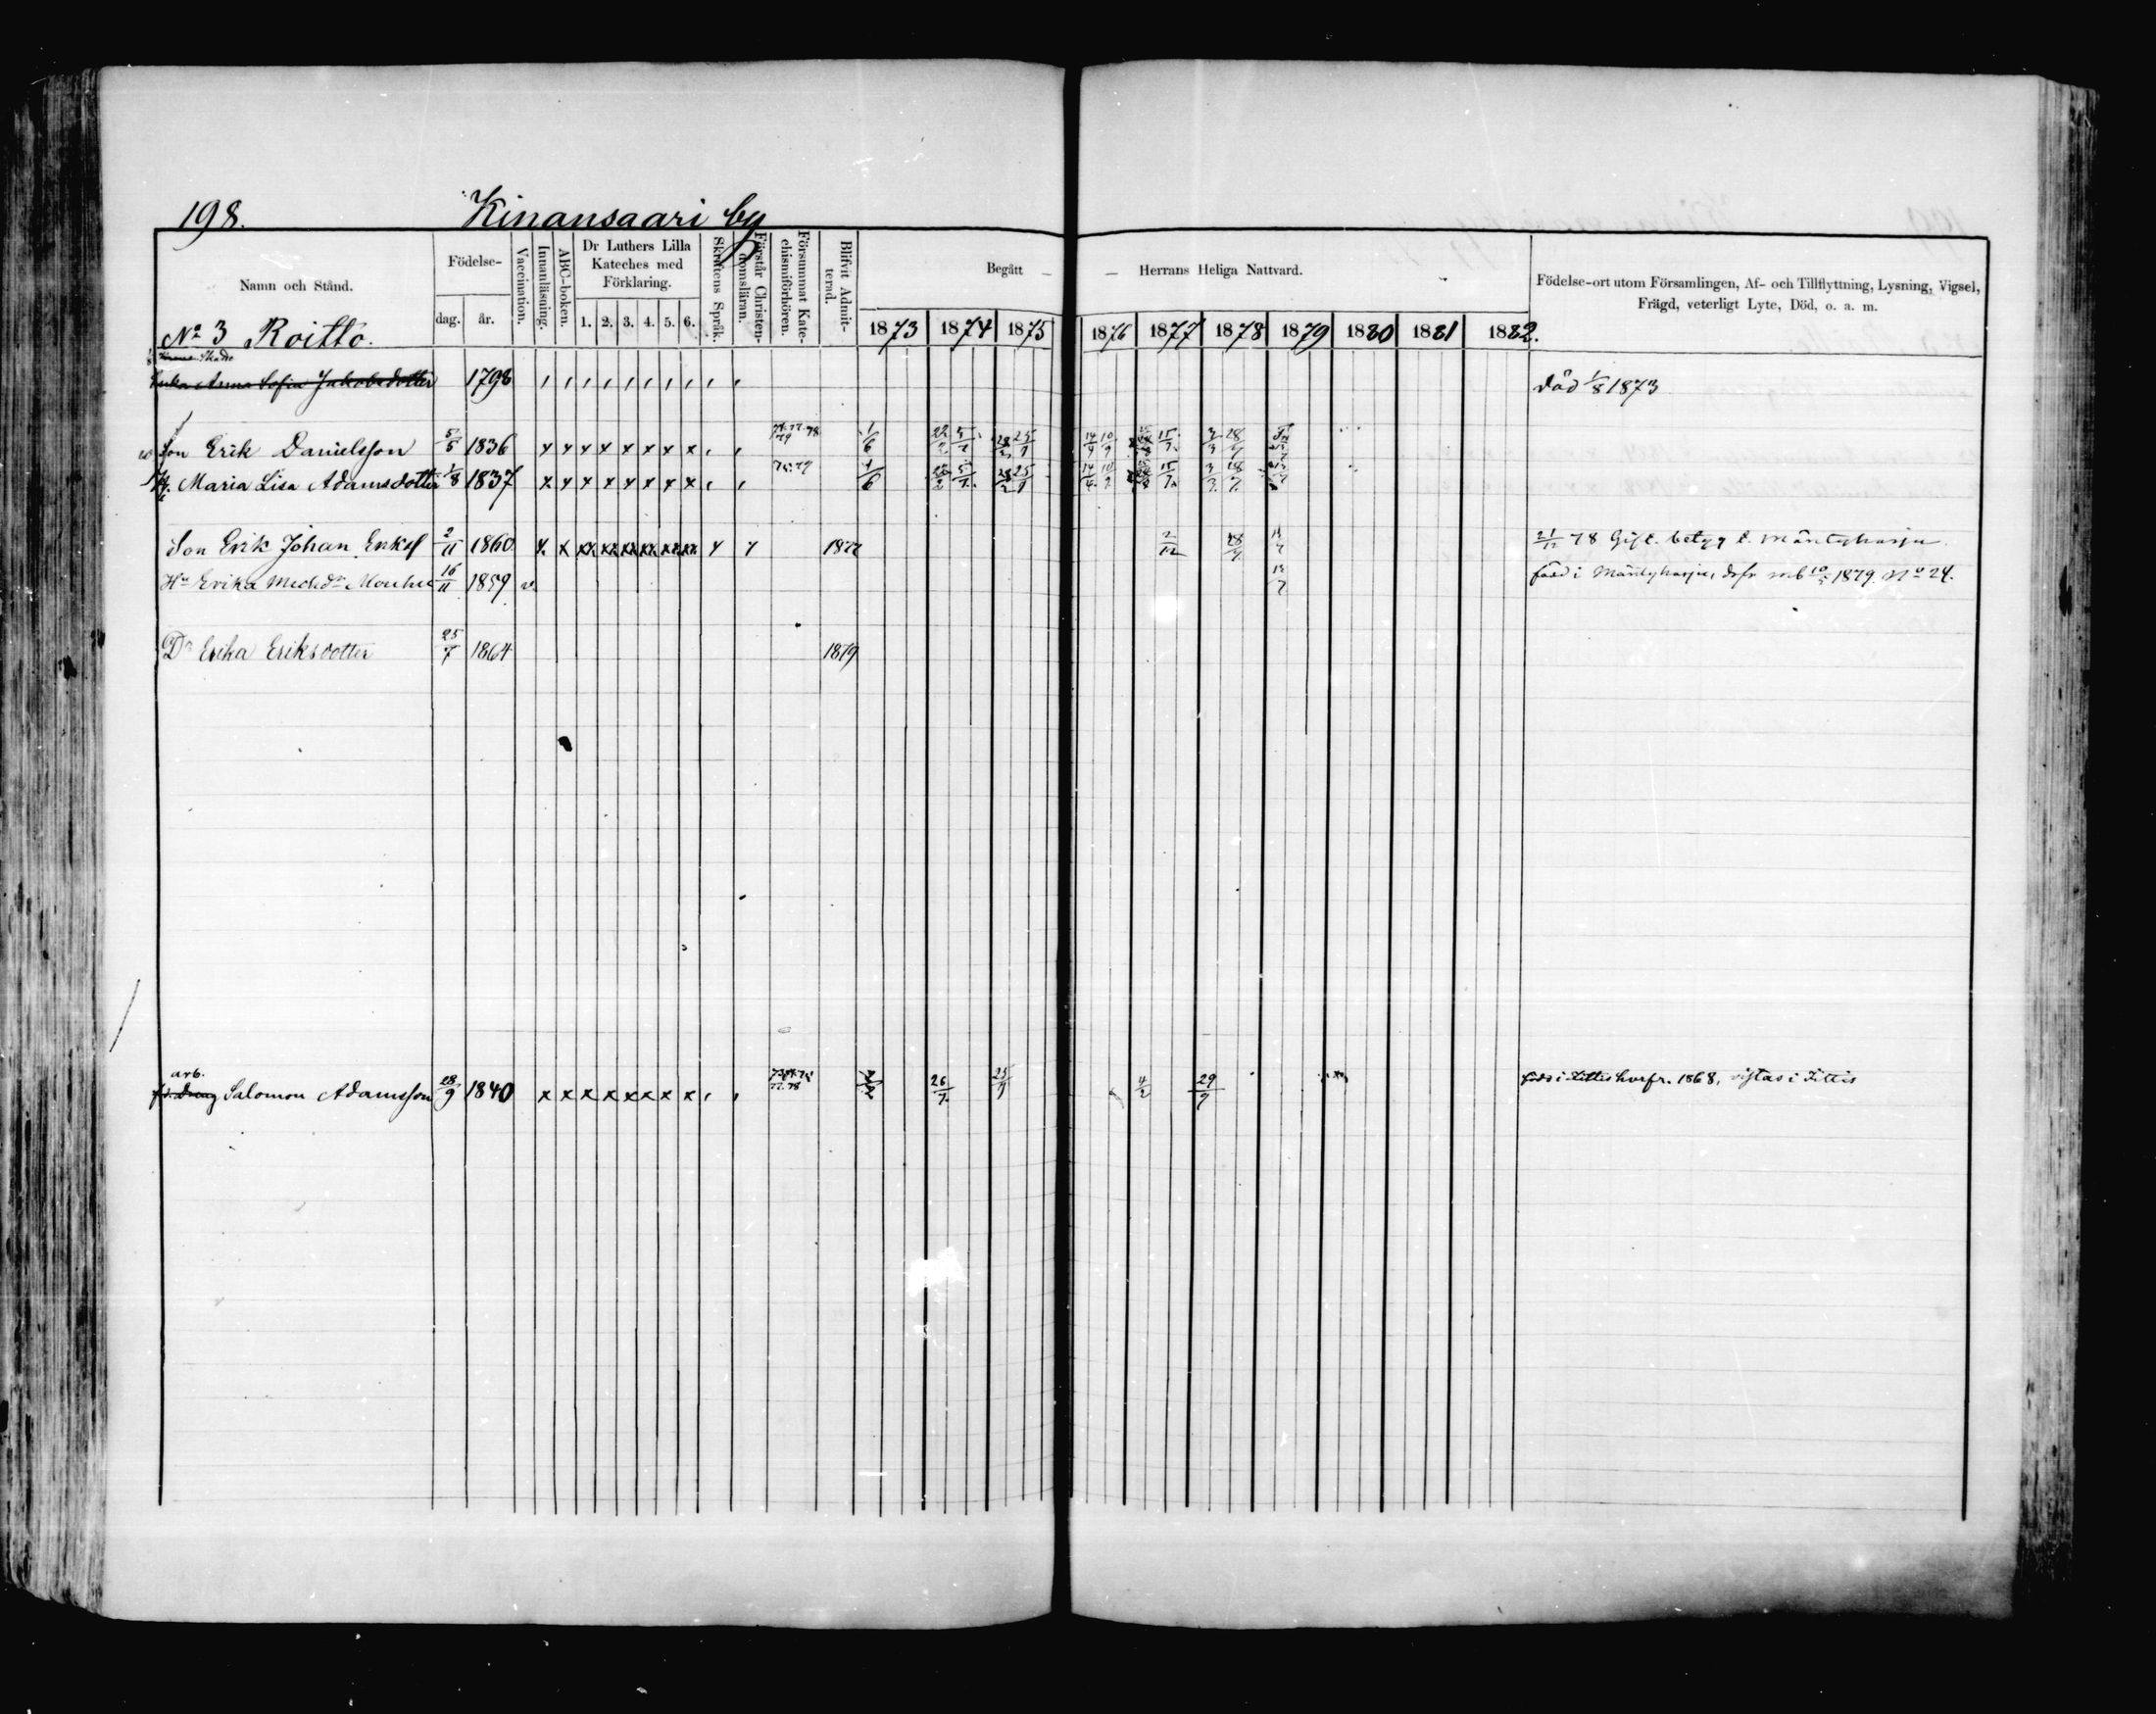 198. Kinansaari by
Namn och Stånd.
Födelse-
dag. år.
Vaccination.
Innanläsning.
ABC-boken.
Dr Luthers Lilla Kateches med Förklaring.
1. 2. 3. 4. 5. 6.
Skriftens Språk.
Förstår Christen-domsläran.
Försummat Kate-chismiförhören.
Blifvit Admit-terad.
Begått Herrans Heliga Nattvard.
1873 1874 1875 1876 1877 1878 1879 1880 1881 1882.
Födelse-ort utom Församlingen, Af- och Tillflyttning, Lysning, Vigsel,
Frägd, veterligt Lyte, Död, o. a. m.
No 3 Roitto.
Enka Anna Sofia Jakobsdotter 1798 död 1/8 1873
Son Erik Danielsson 5/5 1836 x x x x x x x x 1/6 5/7 25/9 14/9 10/9 15/7 3/3 28/7
H. Maria Lisa Adamsdotter 1/8 1837 x x x x x x x x 75.79 1/6 5/7 25/9 10/9 15/7 3/3 28/7
Son Erik Johan Eriks 2/11 1860 x x xx xx xx xx xx xx 1877 2/12 28/7 21/12 78 Gift. betyg t. Mäntyharju.
Hu Erika Michdr 16/11 1859 v. född i Mäntyharju, drfr mb 10/3 1879 No 24.
Dr Erika Eriksdotter 25/7 1864 1879
arb.
f.d. Dräng Salomon Adamsson 28/9 1840 x x x x x x x x 77.78 26/7 25/9 4/2 29/7 född i Littis hvarfr. 1868, vistas i Littis